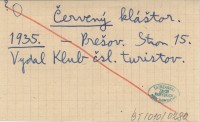 Červený kláštor.
1935. – Prešov. Stran 15.
Vydal Klub čsl. turistov.